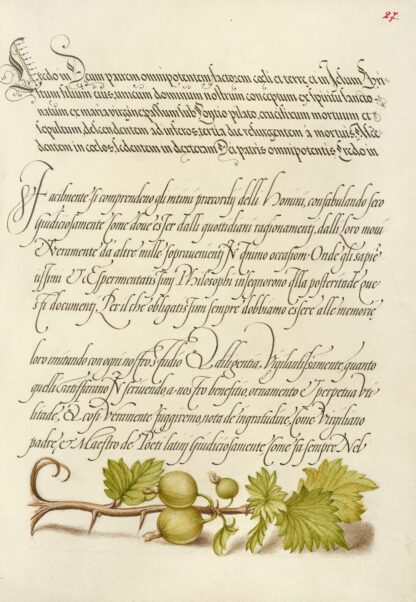 27.
Credo in Deum patrem omnipotentem factorem cęli et terrę et in Iesum Chri-
stum filium eius, unicum dominum nostrum conceptum ex spiritu sancto
natum ex maria virgine passum sub Pontio pilato, crucifixum mortuum et
sepultum descendentem ad inferos, tertia die resurgentem à mortuis, Asce
dentem in cœlos sedentem in dextera Dei patris omnipotentis Credo in
Facilmente si comprendeno gli intimi precordij delli Homini, confabulando sero
Giudiciosamente some doue esser dalli quottidiani ragionamenti, dalli loro moui
Veramente da altre mille sopravementi N ognuno occasiom. Onde gli sapie
tissimi Et Esperimentatissimj Philosophi insegnorono alla posterità que
sti documentj. Per il che obligatissimi sempre dobbiamo essere alle memorie
loro imitando con ogni nostro studio Et diligentia. Vigilantissamente, quanto
quelli satisffariano N scriuendo, a nostro benefitio, ornamento et perpetua Vti
litade, Et cosi Veramente fuggiremo, nota de ingratitudine. Some Virgiliano
padre, et Maestro de Poeti latinj Giudiciosamente some fa sempre Nel